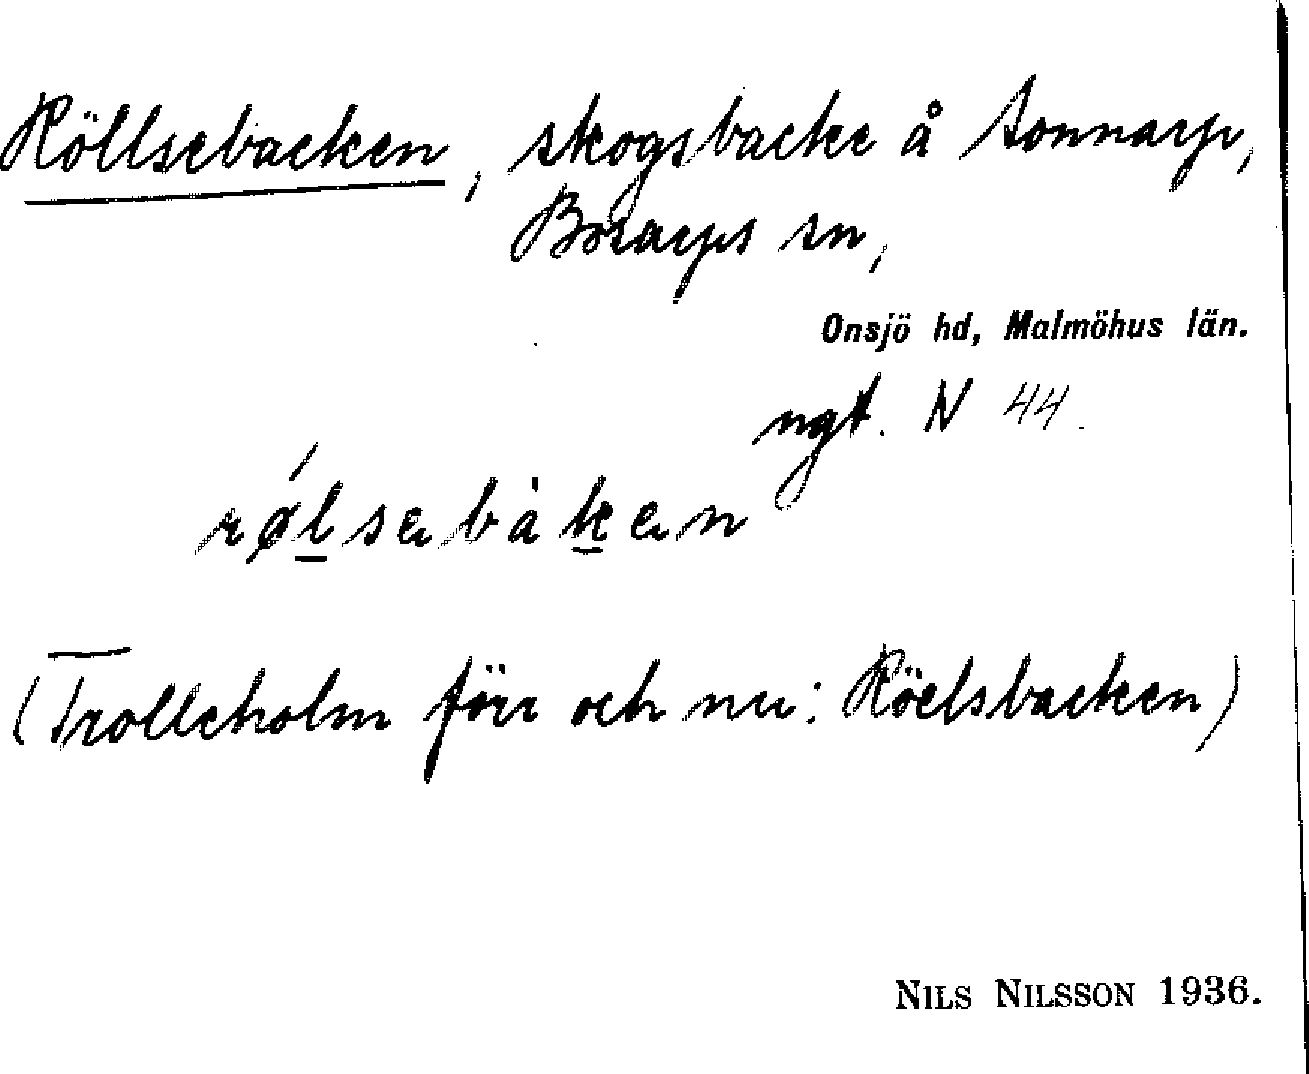 Röllsebacken, skogsbacke å Sonnarp,
Bosarps sn,
Onsjö hd, Malmöhus län.
ngt. N 44.
rǿlsəbàkən
(Trolleholm förr och nu: Röelsbacken)
NILS NILSSON 1936.